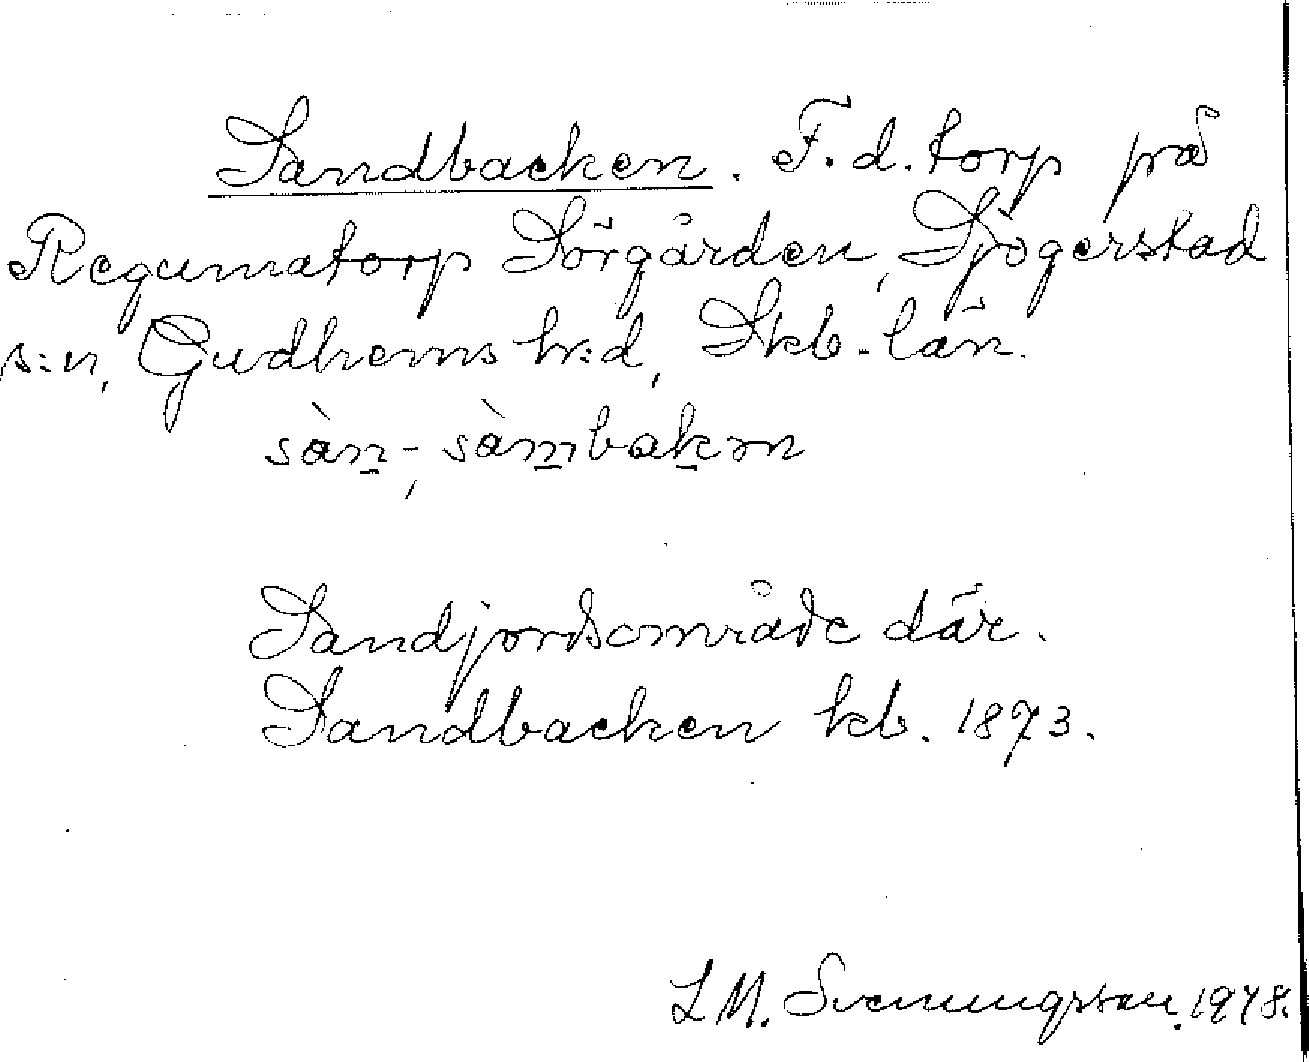 Sandbacken. F.d. torp på
Regumatorp Sörgården, Sjogerstad
s:n, Gudhems hr:d, Skb. län.
sàn-, sàmbakɜn
Sandjordsområde där.
Sandbacken kb. 1873.
L M. Svenungsson. 1948.